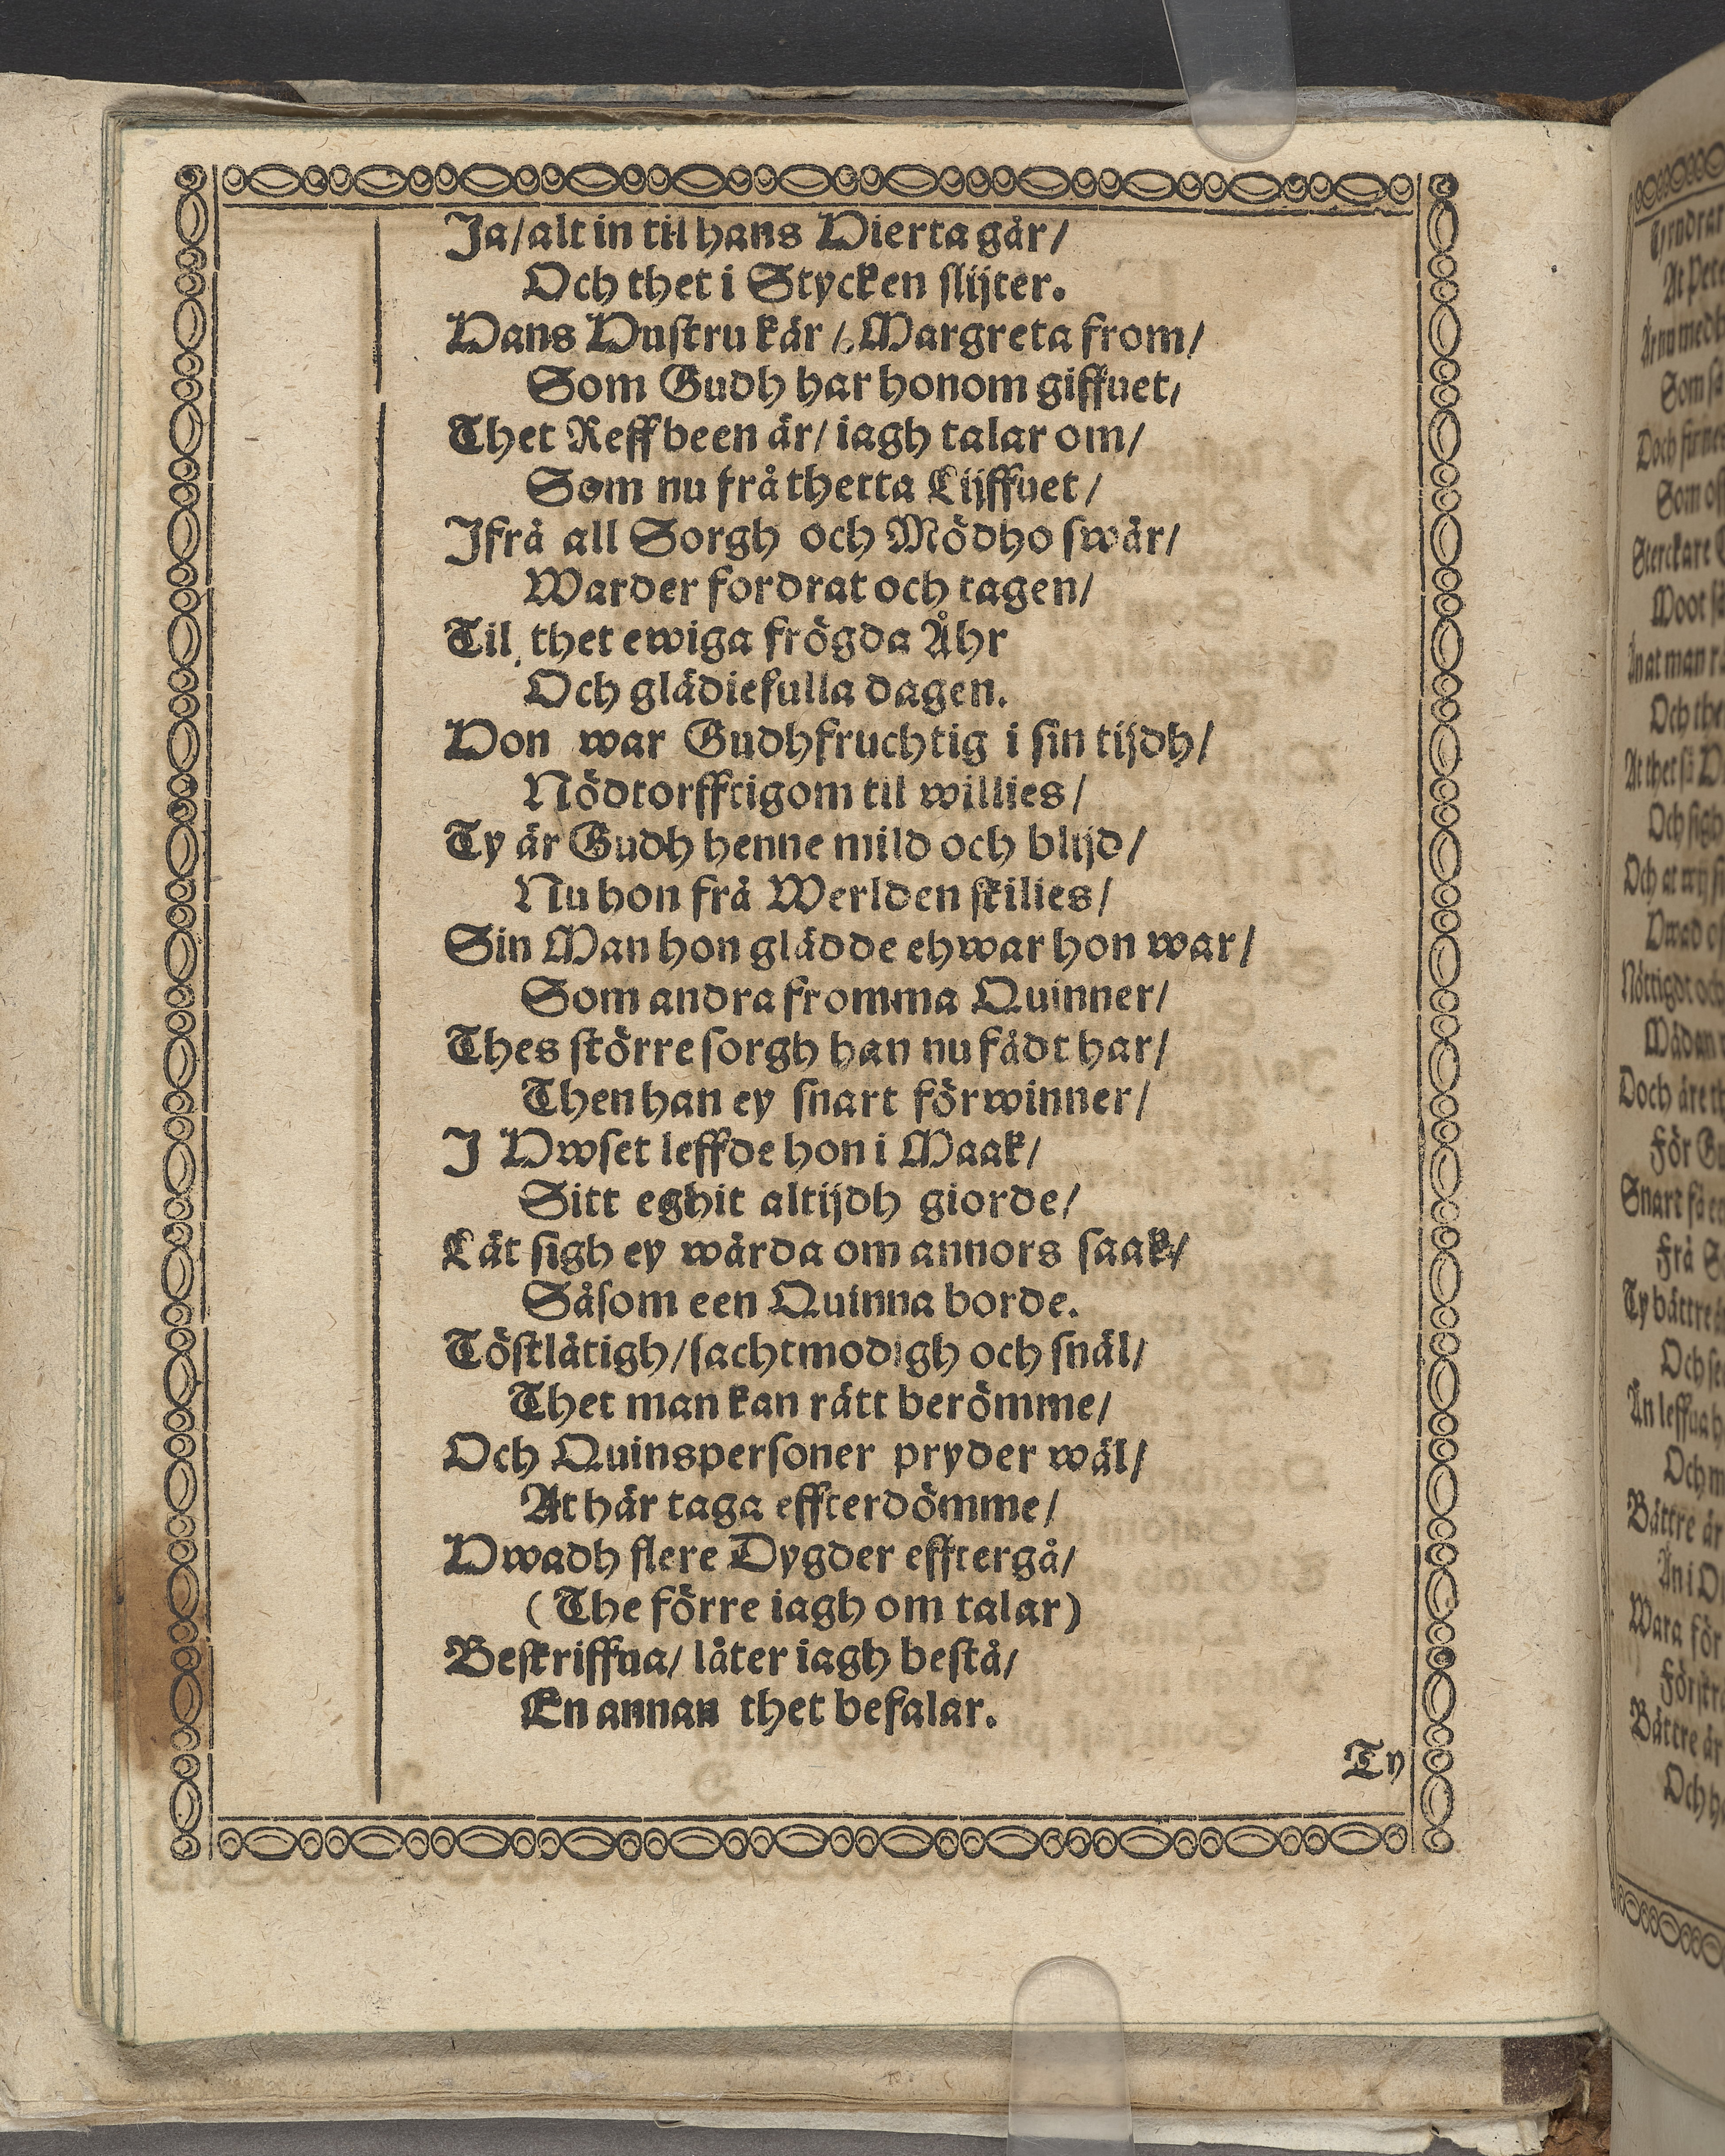 Ja/alt in til hans Hierta går/
Och thet i Stycken slijter.
Hans Hustru kär / Margreta from/
Som Gudh har honom giffuet/
Thet Reffbeen är/ iagh talar om/
Som nu frå thetta Lijffuet/
Ifrå all Sorgh och Mödho swår/
Warder fordrat och tagen/
Til thet ewiga frögda Åhr
Och glädiefulla dagen.
Hon war Gudhfruchtig i sin tijdh/
Nödtorfftigom til willies/
Ty är Gudh henne mild och blijd/
Nu hon frå Werlden skilies/
Sin Man hon glädde ehwar hon war/
Som andra fromma Quinner/
Thes större sorgh han nu fådt har/
Then han ey snart förwinner/
I Hwset leffde hon i Maak/
Sitt eghit altijdh giorde/
Lät sigh ey wårda om annors saak/
Såsom een Quinna borde.
Töstlåtigh/sachtmodigh och snäl/
Thet man kan rätt berömme/
Och Quinspersoner pryder wäl/
At här taga effterdömme/
Hwadh flere Dygder efftergå/
(The förre iagh om talar)
Beskriffua/ låter iagh bestå/
En annan thet befalar.
Ty